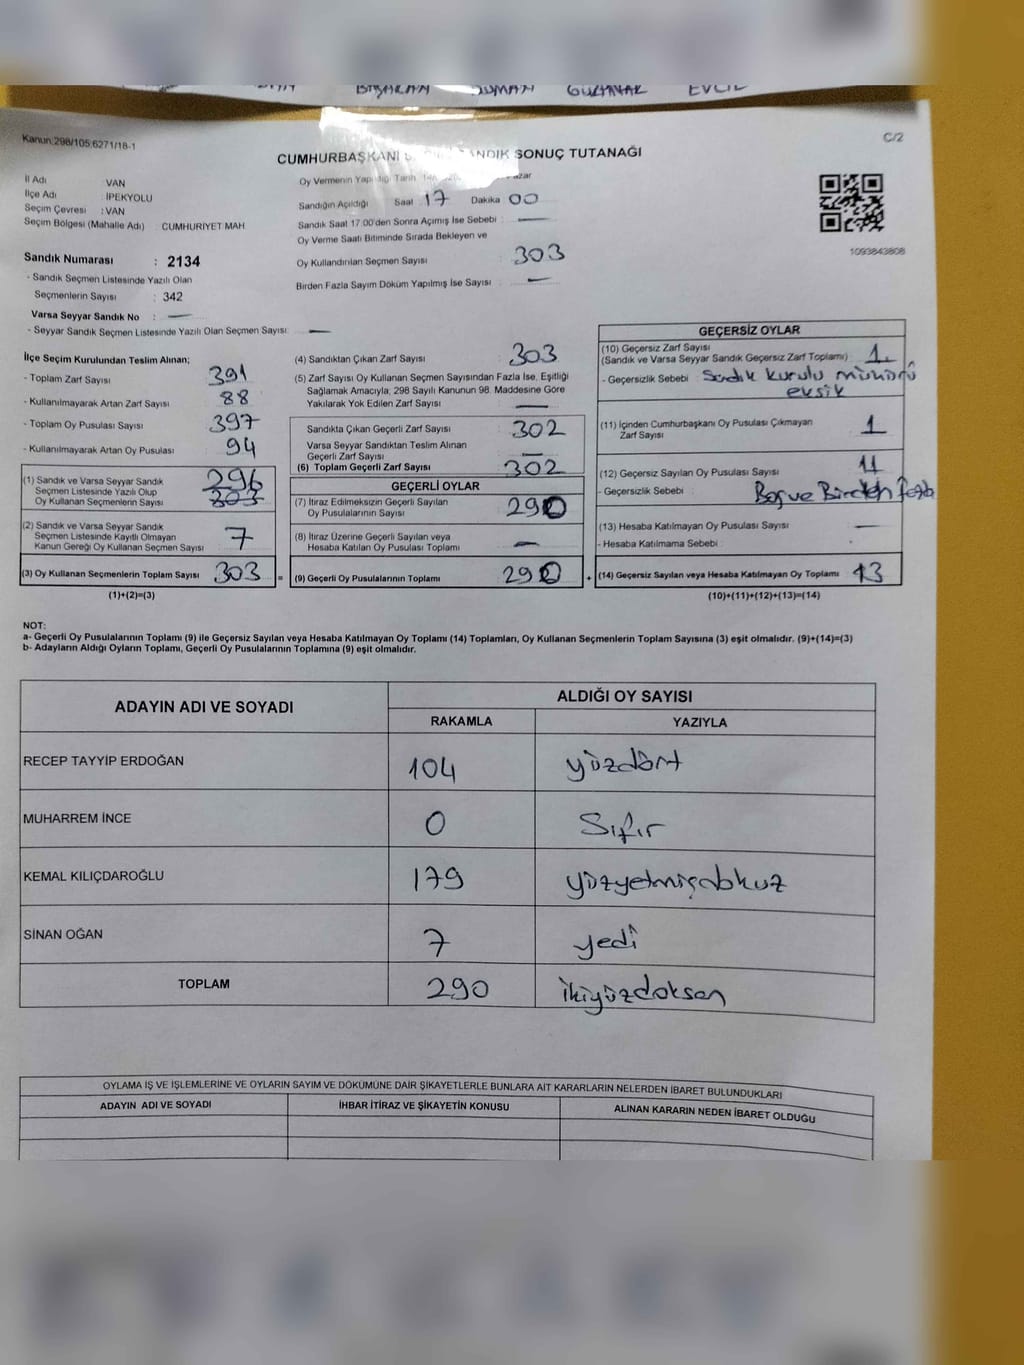 BAŞARAN GÜRPINAR EVLİL
Kanun:298/105;6271/18-1
C/2
CUMHURBAŞKANI SANDIK SONUÇ TUTANAĞI
İl Adı VAN
İlçe Adı :İPEKYOLU
Seçim Çevresi :VAN
Seçim Bölgesi (Mahalle Adı) : CUMHURİYET MAH
Oy Vermenin Yapıldığı Tarih
Sandığın Açıldığı Saat 17 Dakika 00
Sandık Saat 17:00'den Sonra Açımış İse Sebebi : —
Oy Verme Saati Bitiminde Sırada Bekleyen ve
Oy Kullandırılan Seçmen Sayısı : 303
Birden Fazla Sayım Döküm Yapılmış İse Sayısı : —
1093843808
Sandık Numarası : 2134
- Sandık Seçmen Listesinde Yazılı Olan
Seçmenlerin Sayısı : 342
Varsa Seyyar Sandık No : —
- Seyyar Sandık Seçmen Listesinde Yazılı Olan Seçmen Sayısı: —
İlçe Seçim Kurulundan Teslim Alınan;
- Toplam Zarf Sayısı 391
- Kullanılmayarak Artan Zarf Sayısı 88
- Toplam Oy Pusulası Sayısı 397
- Kullanılmayarak Artan Oy Pusulası 94
(1) Sandık ve Varsa Seyyar Sandık 296
Seçmen Listesinde Yazılı Olup
Oy Kullanan Seçmenlerin Sayısı 303
(2) Sandık ve Varsa Seyyar Sandık
Seçmen Listesinde Kayıtlı Olmayan 7
Kanun Gereği Oy Kullanan Seçmen Sayısı
(3) Oy Kullanan Seçmenlerin Toplam Sayısı 303 =
(1)+(2)=(3)
(4) Sandıktan Çıkan Zarf Sayısı 303
(5) Zarf Sayısı Oy Kullanan Seçmen Sayısından Fazla İse, Eşitliği
Sağlamak Amacıyla, 298 Sayılı Kanunun 98. Maddesine Göre
Yakılarak Yok Edilen Zarf Sayısı —
Sandıkta Çıkan Geçerli Zarf Sayısı 302
Varsa Seyyar Sandıktan Teslim Alınan
Geçerli Zarf Sayısı —
(6) Toplam Geçerli Zarf Sayısı 302
GEÇERLİ OYLAR
(7) İtiraz Edilmeksizin Geçerli Sayılan
Oy Pusulalarının Sayısı 290
(8) İtiraz Üzerine Geçerli Sayılan veya
Hesaba Katılan Oy Pusulası Toplamı —
(9) Geçerli Oy Pusulalarının Toplamı 290 +
GEÇERSİZ OYLAR
(10) Geçersiz Zarf Sayısı
(Sandık ve Varsa Seyyar Sandık Geçersiz Zarf Toplamı) 1
- Geçersizlik Sebebi : Sandık kurulu mührü
eksik
(11) İçinden Cumhurbaşkanı Oy Pusulası Çıkmayan
Zarf Sayısı 1
(12) Geçersiz Sayılan Oy Pusulası Sayısı 11
- Geçersizlik Sebebi : Boş ve Birden fazla
(13) Hesaba Katılmayan Oy Pusulası Sayısı —
- Hesaba Katılmama Sebebi :
(14) Geçersiz Sayılan veya Hesaba Katılmayan Oy Toplamı 13
(10)+(11)+(12)+(13)=(14)
NOT:
a- Geçerli Oy Pusulalarının Toplamı (9) ile Geçersiz Sayılan veya Hesaba Katılmayan Oy Toplamı (14) Toplamları, Oy Kullanan Seçmenlerin Toplam Sayısına (3) eşit olmalıdır. (9)+(14)=(3)
b- Adayların Aldığı Oyların Toplamı, Geçerli Oy Pusulalarının Toplamına (9) eşit olmalıdır.
ADAYIN ADI VE SOYADI ALDIĞI OY SAYISI
RAKAMLA YAZIYLA
RECEP TAYYİP ERDOĞAN 104 yüzdört
MUHARREM İNCE 0 Sıfır
KEMAL KILIÇDAROĞLU 179 yüzyetmişdokuz
SİNAN OĞAN 7 yedi
TOPLAM 290 ikiyüzdoksan
OYLAMA İŞ VE İŞLEMLERİNE VE OYLARIN SAYIM VE DÖKÜMÜNE DAİR ŞİKAYETLERLE BUNLARA AİT KARARLARIN NELERDEN İBARET BULUNDUKLARI
ADAYIN ADI VE SOYADI İHBAR İTİRAZ VE ŞİKAYETİN KONUSU ALINAN KARARIN NEDEN İBARET OLDUĞU